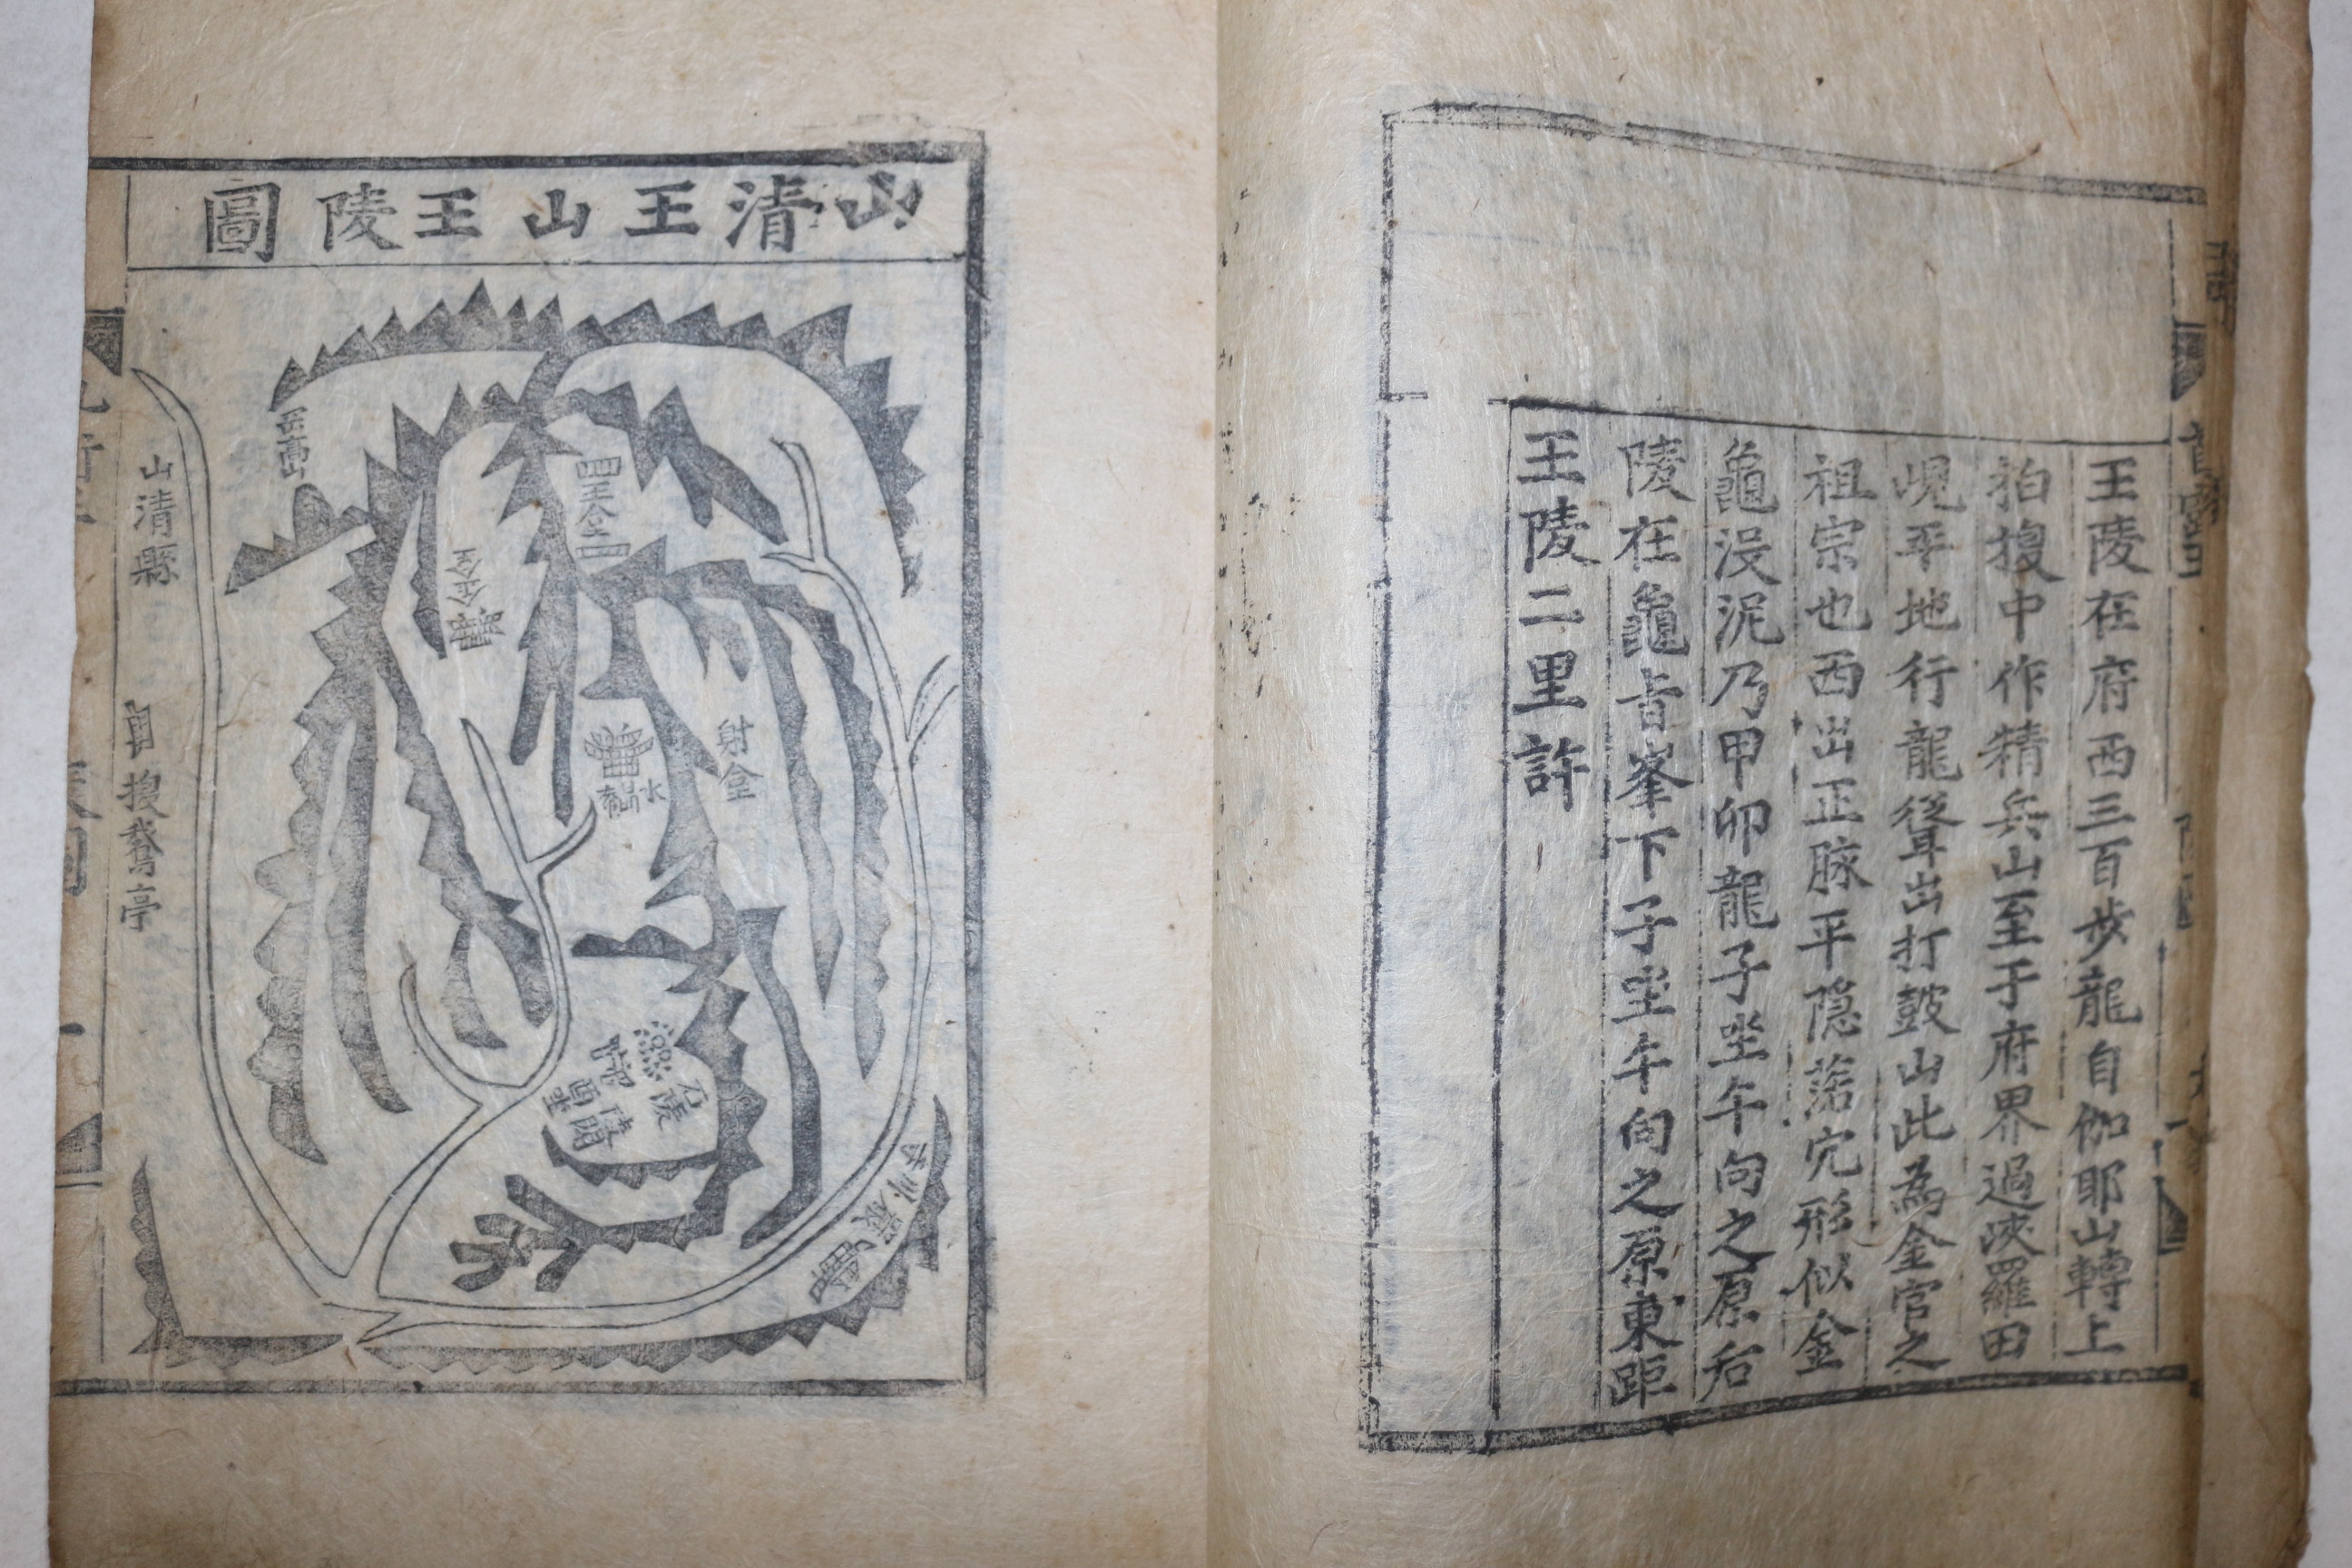 王陵在府西三百步龍自伽耶山轉上
拍搜中作精兵山至于府界過峽羅田
峴平地行龍聳出打鼓山此為金官之
祖宗也西出正脉平隠落穴形似金
龜沒泥乃甲卯龍子坐午向之原后
陵在龜旨峯下子坐午向之原東距
王陵二里許
山清王山王陵圖
山清縣
自搜鵞亭
射垈
水
石陵
陵閣